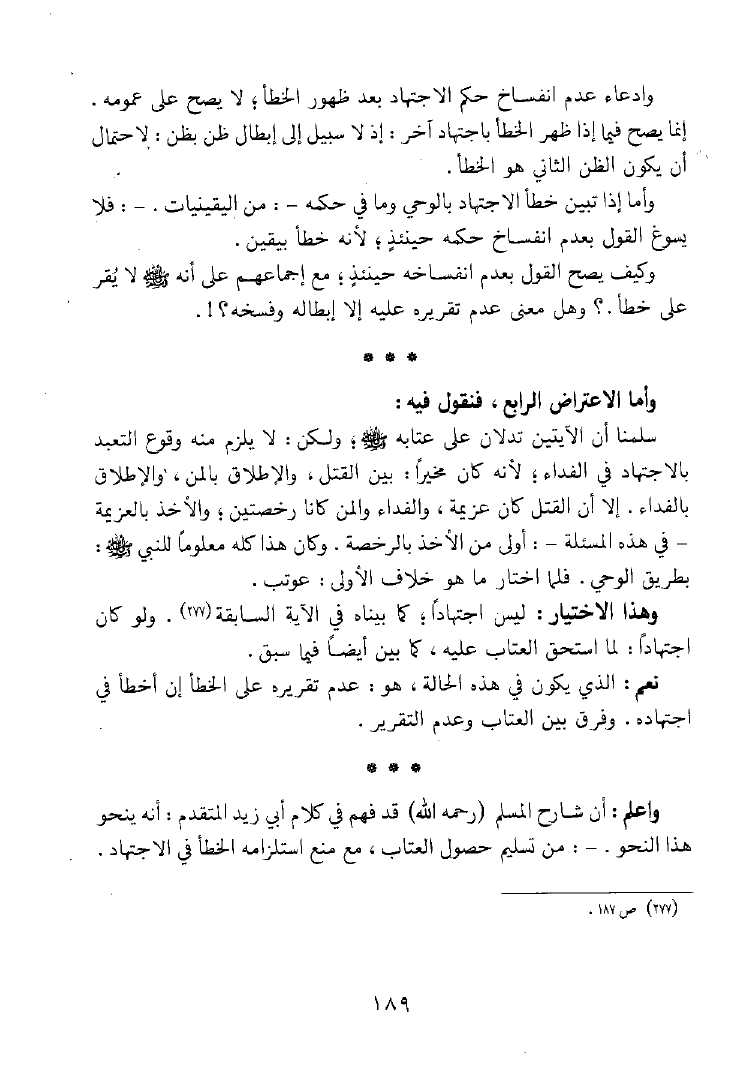 وادعاء عدم انفساخ حكم الاجتهاد بعد ظهور الخطأ ؛ لا يصح على عمومه .
إنما يصح فيما إذا ظهر الخطأ باجتهاد آخر : إذ لا سبيل إلى إبطال ظن بظن : لاحتمال
أن يكون الظن الثاني هو الخطأ .
وأما إذا تبين خطأ الاجتهاد بالوحي وما في حكمه - : من اليقينيات . - : فلا
يسوغ القول بعدم انفساخ حكمه حينئذٍ ؛ لأنه خطأ بيقين .
وكيف يصح القول بعدم انفساخه حينئذٍ ؛ مع إجماعهم على أنه ﷺ لا يُقر
على خطأ .؟ وهل معنى عدم تقريره عليه إلا إبطاله وفسخه؟! .
* * *
وأما الاعتراض الرابع ، فنقول فيه :
سلمنا أن الآيتين تدلان على عتابه ﷺ ؛ ولكن : لا يلزم منه وقوع التعبد
بالاجتهاد في الفداء ؛ لأنه كان مخيراً : بين القتل ، والإطلاق بالمن ، والإطلاق
بالفداء . إلا أن القتل كان عزيمة ، والفداء والمن كانا رخصتين ؛ والأخذ بالعزيمة
- في هذه المسئلة - : أولى من الأخذ بالرخصة . وكان هذا كله معلوماً للنبي ﷺ :
بطريق الوحي . فلما اختار ما هو خلاف الأولى : عوتب .
وهذا الاختيار : ليس اجتهاداً ؛ كما بيناه في الآية السابقة (٢٧٧) . ولو كان
اجتهاداً : لما استحق العتاب عليه ، كما بين أيضاً فيما سبق .
نعم : الذي يكون في هذه الحالة ، هو : عدم تقريره على الخطأ إن أخطأ في
اجتهاده . وفرق بين العتاب وعدم التقرير .
* * *
واعلم : أن شارح المسلم (رحمه الله) قد فهم في كلام أبي زيد المتقدم : أنه ينحو
هذا النحو . - : من تسليم حصول العتاب ، مع منع استلزامه الخطأ في الاجتهاد .
(٢٧٧) ص ١٨٧ .
١٨٩